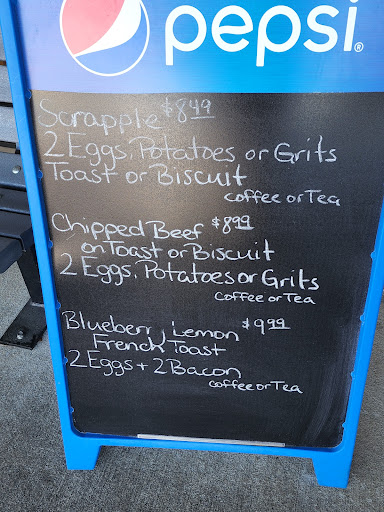 pepsi®
Scrapple $8.49
2 Eggs, Potatoes or Grits
Toast or Biscuit
coffee or Tea
Chipped Beef $8.99
on Toast or Biscuit
2 Eggs, Potatoes or Grits
coffee or Tea
Blueberry, Lemon $9.99
French Toast
2 Eggs + 2 Bacon
coffee or Tea